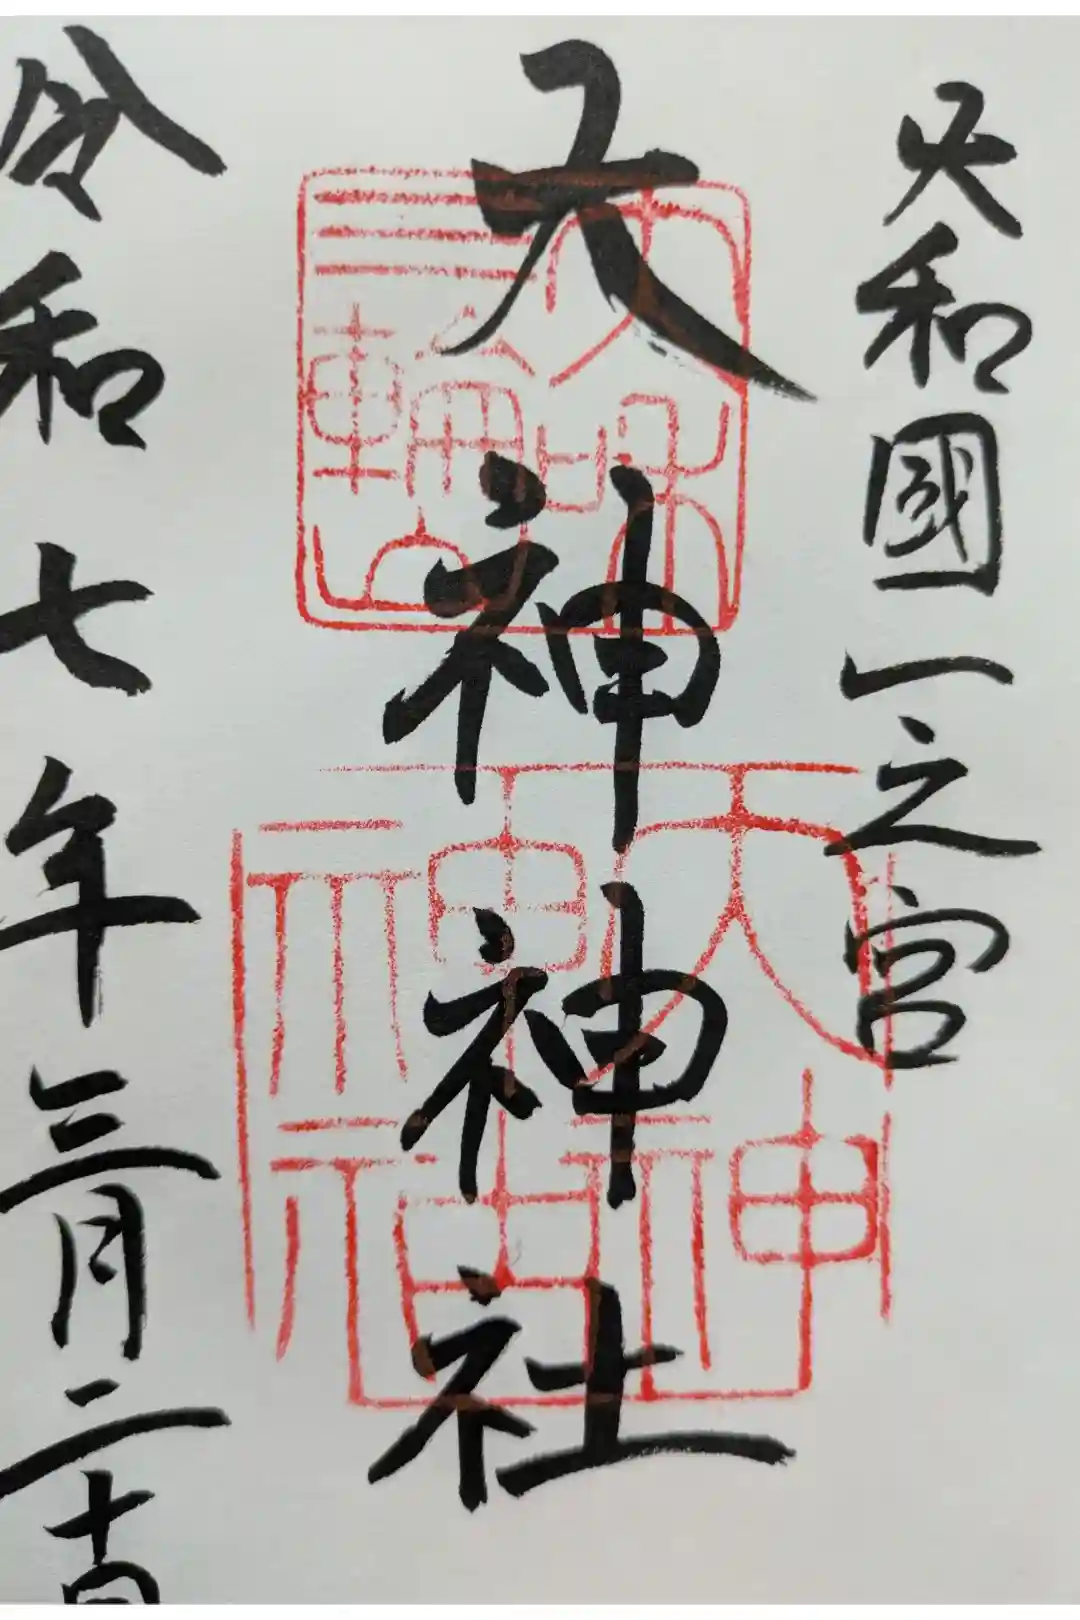 大和國一之宮
大神神社
令和七年三月二十
大神
神社